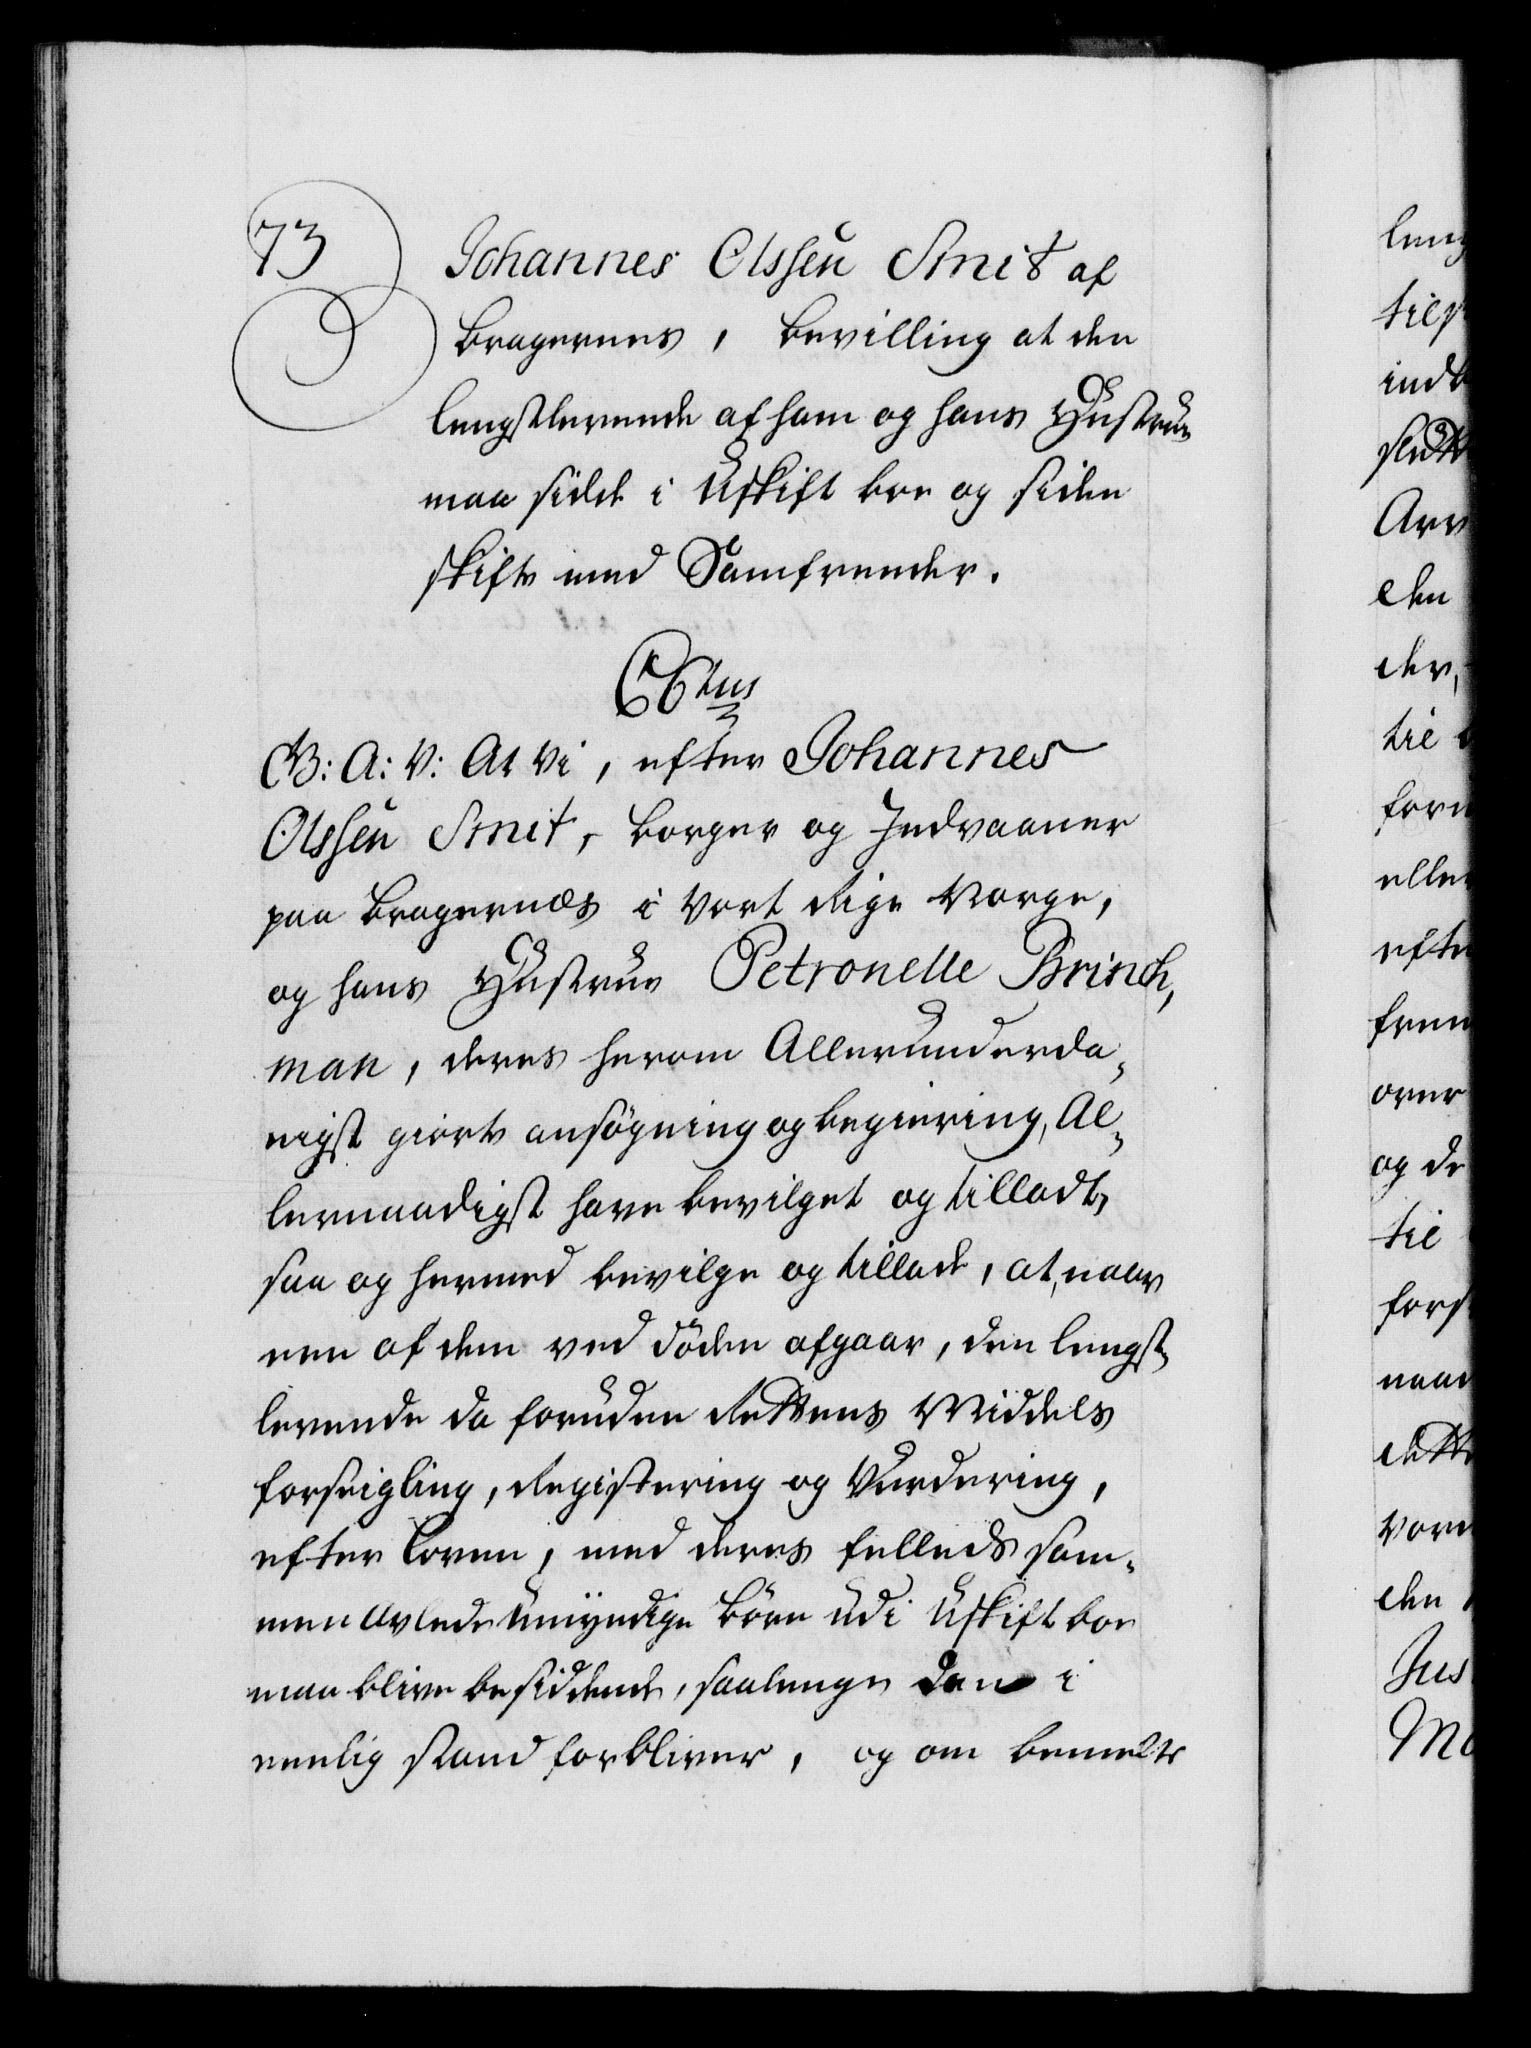 73
Johannes Olssen Smit af
Bragernes, Bevilling at den
lengstlevende af ham og hans Hustrue
maa sidde i Uskift boe og siden
skifte med Samfrender.
C 6tus
G: A: V: At Vi, efter Johannes
Olssen Smit, borger og Indvaaner
paa Bragernæs i Vort Rige Norge,
og hans Hustrue Petronelle Brinch,
man, deres herom Allerunderda,
nigst giorte ansøgning og begiering, Al,
lernaadigst have bevilget og tilladt,
saa og hermed bevilge og tillade, at, naar
een af dem ved døden afgaar, den lengst,
levende da foruden Rettens Middels
forseigling, Registering og Vurdering,
efter Loven, med deres felleds sam,
men avlede umyndige børn udi Uskift boe
maa blive besiddende, saalenge den i
eenlig stand forbliver, og om bemelte
leng
til
ind
Arv
den
der,
til
forn
eller
efte
fren
over
og de
til
fors
naad
Rette
vore
den
Jus
Mo